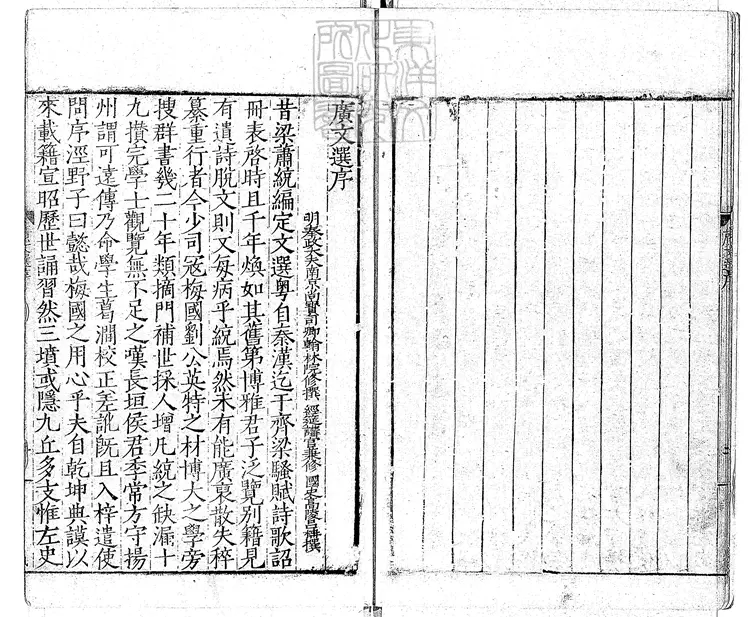 廣文選序
明奉政大夫南京尚寶司卿翰林院修撰 經筵講官兼修 國史高陵呂柟撰
昔梁蕭統編定文選粤自秦漢迄于齊梁騷賦詩歌詔
冊表啓時且千年煥如其舊第博雅君子之覽別籍見
有遺詩脫文則又每病乎統焉然未有能廣裒散失稡
纂重行者今少司寇梅國劉公英特之材博大之學旁
搜群書幾二十年類摘門補世採人增凡統之缺漏十
九攢完學士觀覽無不足之嘆長垣侯君季常方守揚
州謂可遠傳乃命學生葛澗校正差訛旣且入梓遣使
問序涇野子曰懿哉梅國之用心乎夫自乾坤典謨以
來載籍宣昭歷世誦習然三墳或隱九丘多支惟左史